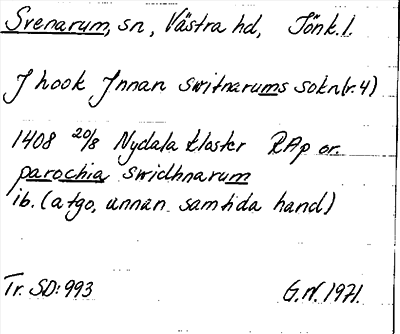 Svenarum, sn, Västra hd, Jönk. l.
J hook Jnnan switnarums sokn (r. 4)
1408 20/8 Nydala kloster RAp or.
parochia swidhnarum
ib. (atgo, annan samtida hand)
Tr. SD: 993 G.W. 1971.